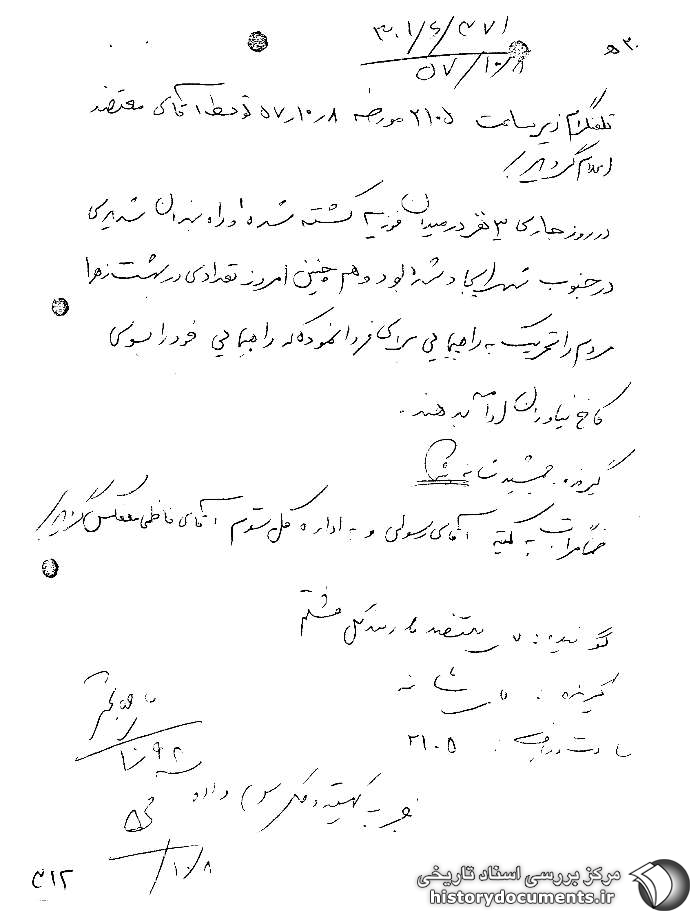 ۳۰ ه
۳۰۱/۶/۳۷۱
۵۷/۱۰/۸
تلفنگرام زیر ساعت ۲۱۰۵ مورخه ۵۷٫۱۰٫۸ توسط آقای معتضد
اعلام گردید/
در روز جاری ۳ نفر در میدان فوزیه کشته شده و راه بندان شدیدی
در جنوب شهر ایجاد شده بود و هم چنین امروز تعدادی در بهشت زهرا
مردم را تحریک به راهپیمایی برای فردا نموده که راهپیمایی خود را بسوی
کاخ نیاوران ادامه بدهند.
گیرنده. جمشید شانه
ضمناً مراتب به کمیته آقای رسولی و به اداره کل سوم آقای فاطمی منعکس گردید/
گوینده: معتضد اداره کل هشتم
گیرنده: شانه
ساعت دریافت: ۲۱۰۵
به کمیته و کل سوم داده
۱۰/۸
۳۱۲
مرکز بررسی اسناد تاریخی
historydocuments.ir